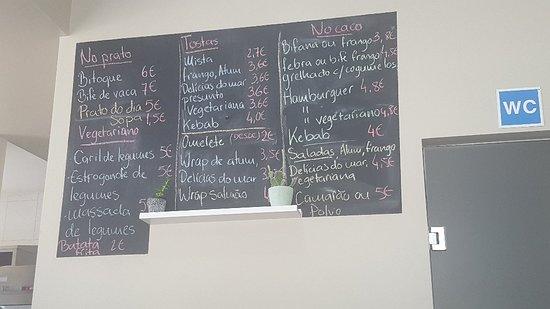 No prato
Bitoque 6€
Bife de vaca 7€
Prato do dia 5€
Sopa 1,5€
Vegetariano
Caril de legumes 5€
- Estrogonofe de 5€
legumes
- Massada 5€
de legumes
Batata 2€
frita
Tostas
Mista 2,7€
frango, Atum 3,6€
Delícias do mar 3,6€
presunto 3,6€
Vegetariana 3,6€
Kebab 4,0€
Omelete (DESDE) 2€
Wrap de atum, 3,5€
Delícias do mar
Wrap Salmão
No caco
Bifana ou frango 3,8€
febra ou bife frango 4,5€
grelhado c/ cogumelos
Hamburguer 4,8€
" vegetariano 4,8€
Kebab 4€
Saladas Atum, frango
Delícias do mar, 4,5€
vegetariana
Camarão ou 5€
Polvo
WC